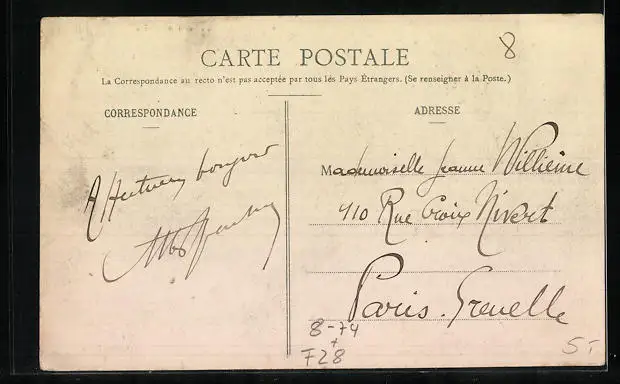 8
CARTE POSTALE
La Correspondance au recto n'est pas acceptée par tous les Pays Étrangers. (Se renseigner à la Poste.)
CORRESPONDANCE
ADRESSE
bonjour
Mademoiselle Jeanne Willieme
110 Rue Croix Nivert
Paris. Grenelle
8-74
+
F28
5-